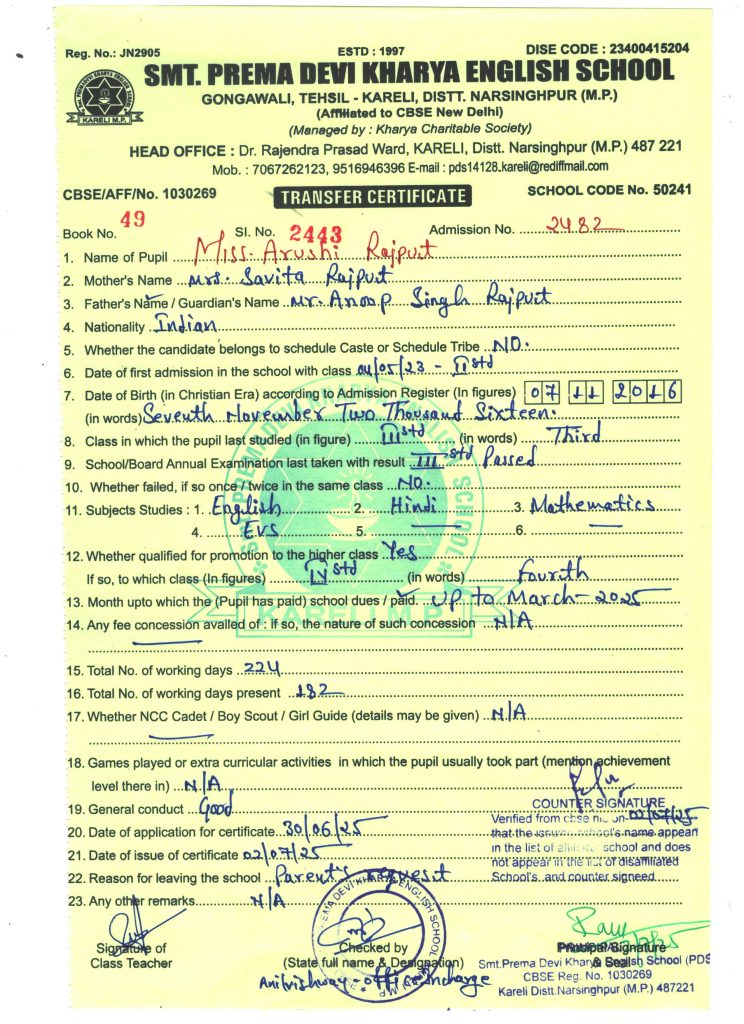 Reg. No.: JN2905 ESTD : 1997 DISE CODE : 23400415204
SMT. PREMA DEVI KHARYA ENGLISH SCHOOL
KARELI M.P.
GONGAWALI, TEHSIL - KARELI, DISTT. NARSINGHPUR (M.P.)
(Affiliated to CBSE New Delhi)
(Managed by : Kharya Charitable Society)
HEAD OFFICE : Dr. Rajendra Prasad Ward, KARELI, Distt. Narsinghpur (M.P.) 487 221
Mob. : 7067262123, 9516946396 E-mail : pds14128.kareli@rediffmail.com
CBSE/AFF/No. 1030269 TRANSFER CERTIFICATE SCHOOL CODE No. 50241
Book No. 49 Sl. No. 2443 Admission No. 2482
1. Name of Pupil Miss. Arushi Rajput
2. Mother's Name Mrs. Savita Rajput
3. Father's Name / Guardian's Name Mr. Anoop Singh Rajput
4. Nationality Indian
5. Whether the candidate belongs to schedule Caste or Schedule Tribe NO.
6. Date of first admission in the school with class 04/05/23 - IInd std
7. Date of Birth (in Christian Era) according to Admission Register (In figures) 07 11 2016
(in words) Seventh November Two Thousand Sixteen.
8. Class in which the pupil last studied (in figure) III std (in words) Third
9. School/Board Annual Examination last taken with result III std Passed
10. Whether failed, if so once / twice in the same class NO.
11. Subjects Studies : 1. English 2. Hindi 3. Mathematics
4. EVS 5. 6.
12. Whether qualified for promotion to the higher class Yes
If so, to which class (In figures) IV std (in words) Fourth
13. Month upto which the (Pupil has paid) school dues / paid. Up to March-2025
14. Any fee concession availed of : if so, the nature of such concession N/A
15. Total No. of working days 224
16. Total No. of working days present 182
17. Whether NCC Cadet / Boy Scout / Girl Guide (details may be given) N/A
18. Games played or extra curricular activities in which the pupil usually took part (mention achievement
level there in) N/A
19. General conduct Good
20. Date of application for certificate 30/06/25
21. Date of issue of certificate 02/07/25
22. Reason for leaving the school Parent's request
23. Any other remarks N/A
COUNTER SIGNATURE
Verified from cbse on 02/07/25
that the school's name appear
in the list of school and does
not appear in the list of disaffiliated
School's and counter signeed
Signature of
Class Teacher
Checked by
(State full name & Designation)
Anilvishway - office Incharge
Principal Signature
& Seal
Smt.Prema Devi Kharya English School (PDS
CBSE Reg. No. 1030269
Kareli Distt.Narsinghpur (M.P.) 487221